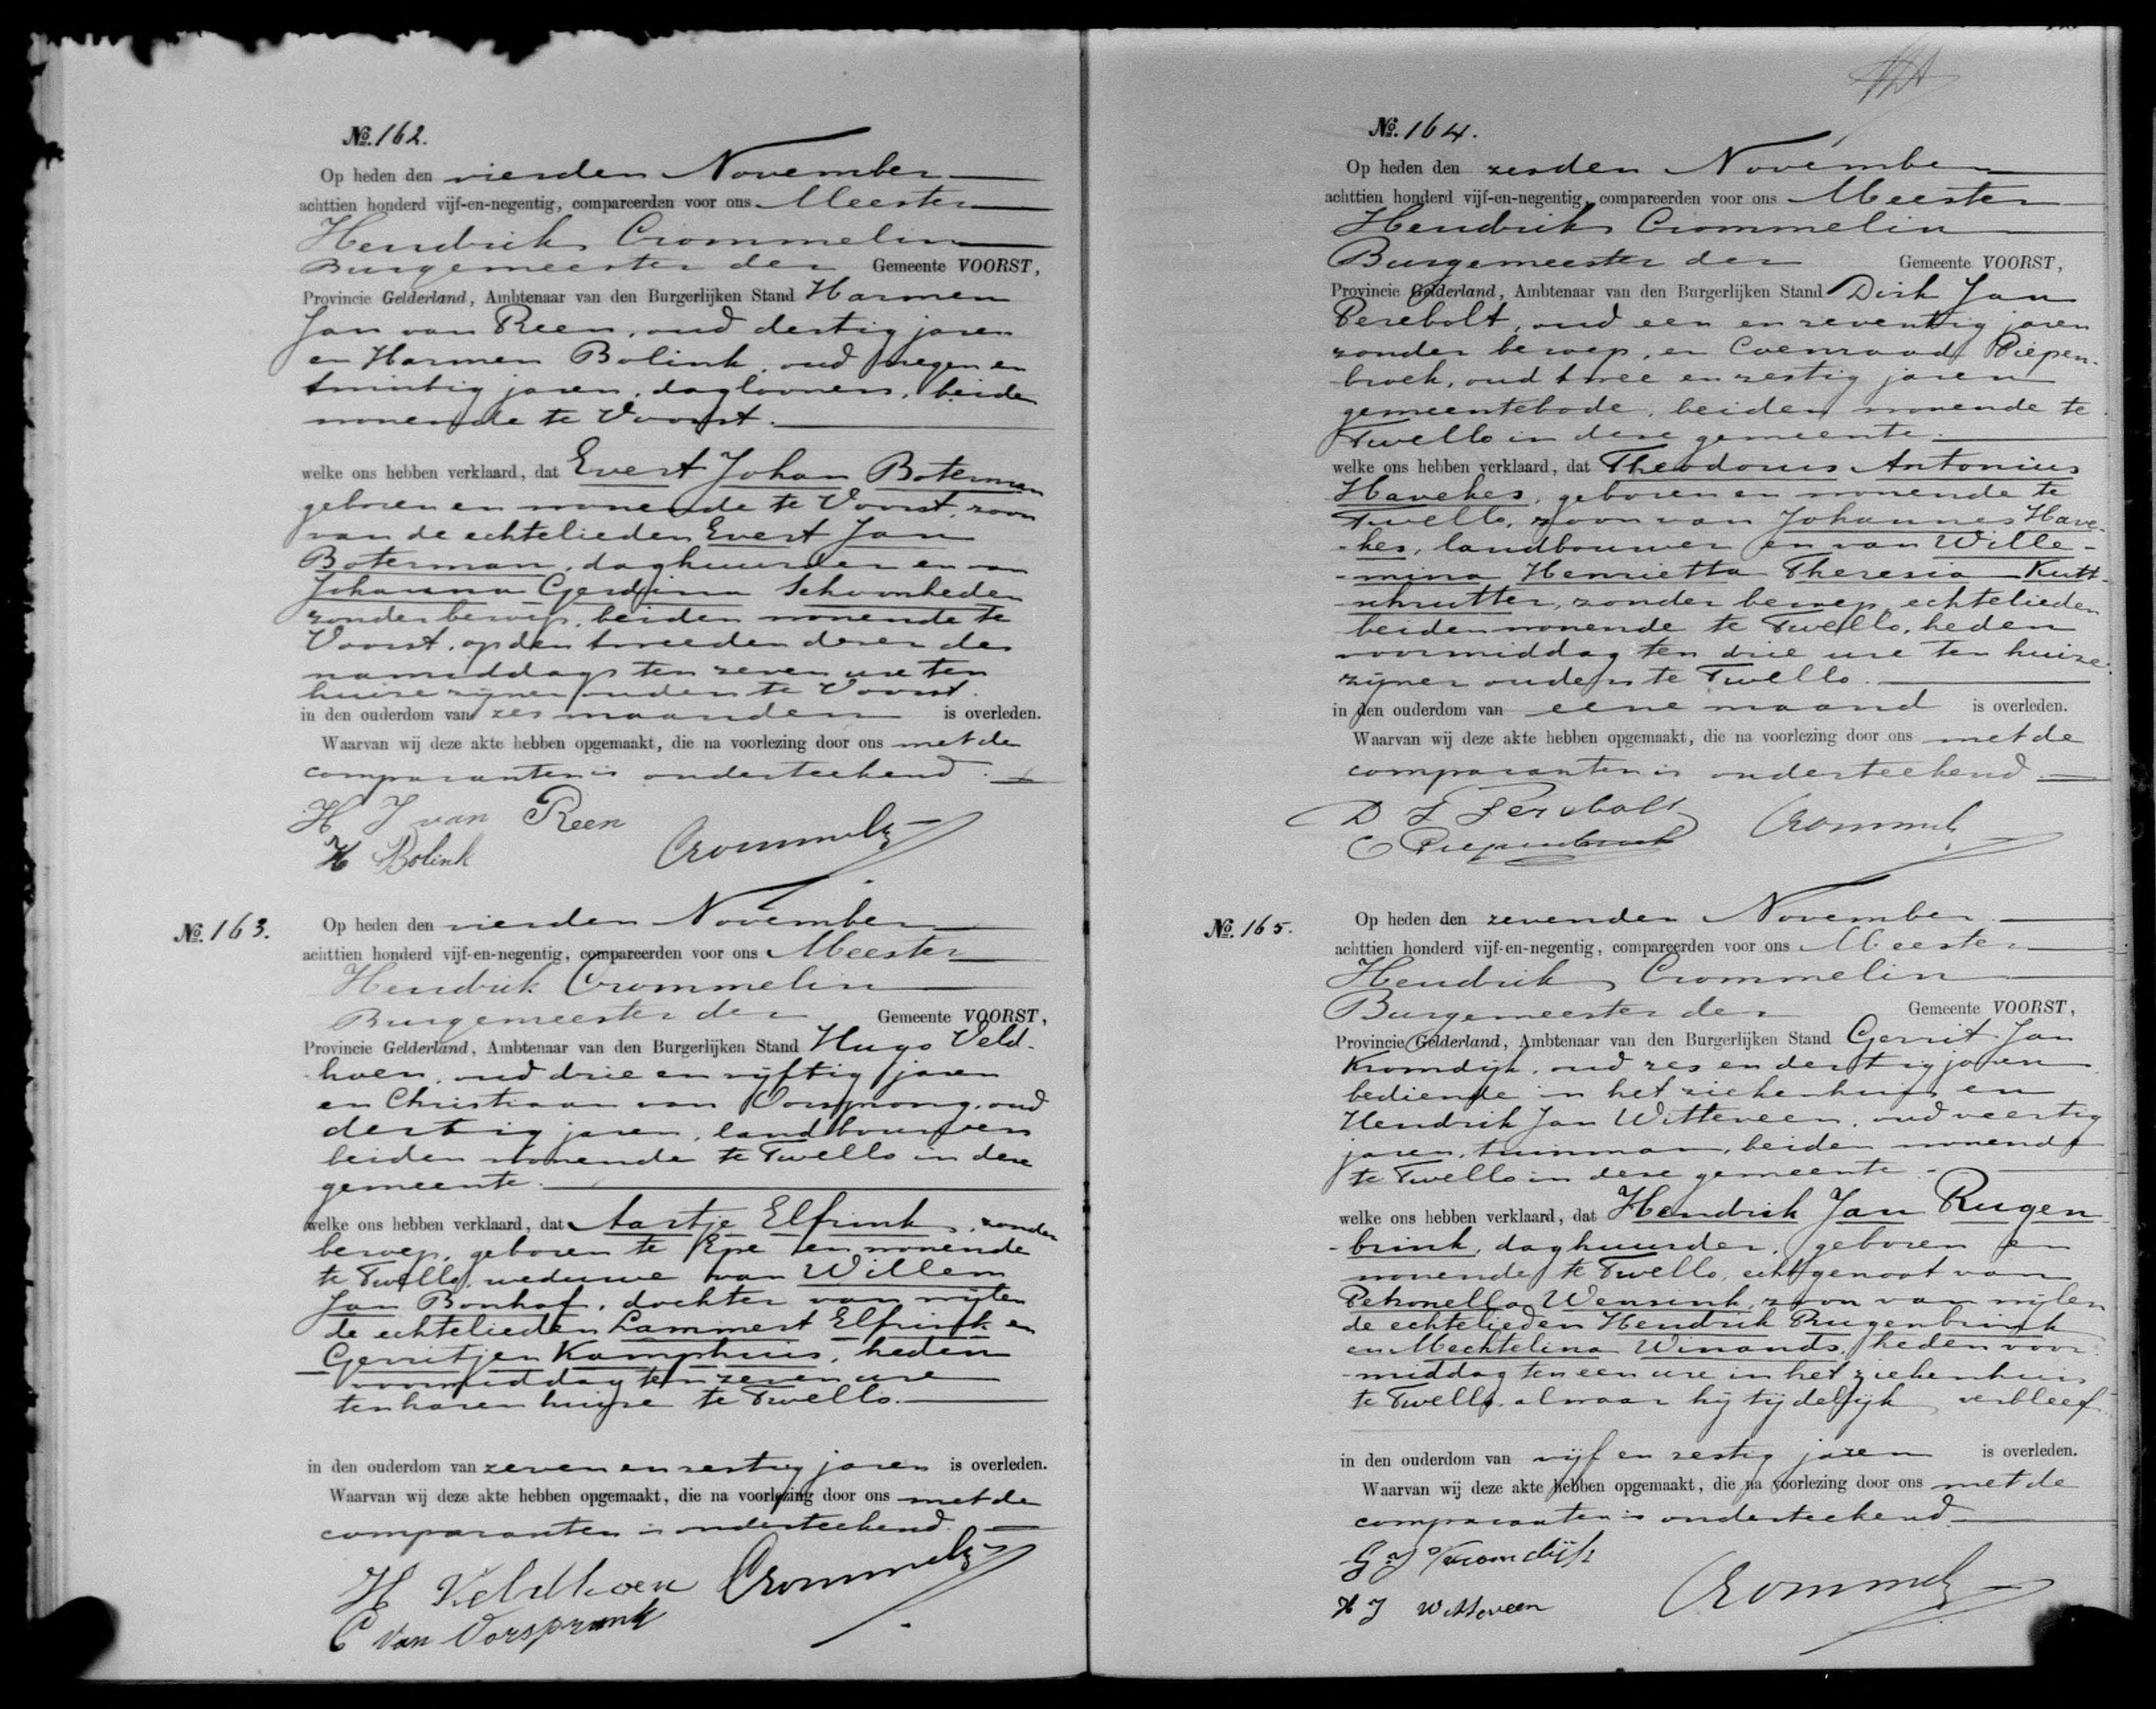 No. 162.
Op heden den vierden November
achttien honderd vijf-en-negentig, compareerden voor ons Meester
Hendrik Crommelin
Burgemeester der Gemeente VOORST,
Provincie Gelderland, Ambtenaar van den Burgerlijken Stand Harmen
Jan van Reen, oud dertig jaren
en Harmen Bolink, oud negen en
twintig jaren, daglooners, beiden
wonende te Voorst.
welke ons hebben verklaard, dat Evert Johan Boterman
geboren en wonende te Voorst, zoon
van de echtelieden Evert Jan
Boterman, daghuurder en van
Johanna Gerdina Schoonheden
zonder beroep, beiden wonende te
Voorst, op den tweeden dezer des
namiddags ten zeven ure ten
huize zijner ouders te Voorst.
in den ouderdom van zes maanden is overleden.
Waarvan wij deze akte hebben opgemaakt, die na voorlezing door ons met de
comparanten is onderteekend.
H J van Reen
H Bolink Crommelin
No. 163.
Op heden den vierden November
achttien honderd vijf-en-negentig, compareerden voor ons Meester
Hendrik Crommelin
Burgemeester der Gemeente VOORST,
Provincie Gelderland, Ambtenaar van den Burgerlijken Stand Hugo Veld-
hoen, oud drie en vijftig jaren
en Christiaan van Oorsprong, oud
dertig jaren, landbouwers
beiden wonende te Twello in deze
gemeente.
welke ons hebben verklaard, dat Aartje Elfrink, zonder
beroep, geboren te Epe en wonende
te Twello, weduwe van Willem
Jan Bonhof, dochter van wijlen
de echtelieden Lammert Elfrink en
Gerritjen Kamphuis, heden
voormiddag ten zeven ure
ten haren huize te Twello.
in den ouderdom van zeven en zestig jaren is overleden.
Waarvan wij deze akte hebben opgemaakt, die na voorlezing door ons met de
comparanten is onderteekend.
H Veldhoen Crommelin
C van Oorspronk
No. 164.
Op heden den zesden November
achttien honderd vijf-en-negentig, compareerden voor ons Meester
Hendrik Crommelin
Burgemeester der Gemeente VOORST,
Provincie Gelderland, Ambtenaar van den Burgerlijken Stand Dirk Jan
Perebolt, oud een en zeventig jaren
zonder beroep, en Coenraad Piepen-
broek, oud twee en zestig jaren
gemeentebode, beiden wonende te
Twello in deze gemeente.
welke ons hebben verklaard, dat Theodorus Antonius
Havekes, geboren en wonende te
Twello, zoon van Johannes Have-
-kes, landbouwer en van Wille-
-mina Henrietta Theresia Kutt-
schrutter, zonder beroep, echtelieden
beiden wonende te Twello, heden
voormiddag ten drie ure ten huize
zijner ouders te Twello.
in den ouderdom van eene maand is overleden.
Waarvan wij deze akte hebben opgemaakt, die na voorlezing door ons met de
comparanten is onderteekend.
D J Perebolt
C Piepenbroek Crommelin
No. 165.
Op heden den zevenden November
achttien honderd vijf-en-negentig, compareerden voor ons Meester
Hendrik Crommelin
Burgemeester der Gemeente VOORST,
Provincie Gelderland, Ambtenaar van den Burgerlijken Stand Gerrit Jan
Kromdijk, oud zes en dertig jaren
bediende in het ziekenhuis en
Hendrik Jan Witteveen, oud veertig
jaren, tuinman, beiden wonende
te Twello in deze gemeente.
welke ons hebben verklaard, dat Hendrik Jan Rugen-
-brink, daghuurder, geboren en
wonende te Twello, echtgenoot van
Petronella Wensink, zoon van wijlen
de echtelieden Hendrik Rugenbrink
en Mechtelina Winands, heden voor-
-middag ten een ure in het ziekenhuis
te Twello, alwaar hij tijdelijk verbleef
in den ouderdom van vijf en zestig jaren is overleden.
Waarvan wij deze akte hebben opgemaakt, die na voorlezing door ons met de
comparanten is onderteekend.
G J Kromdijk
H J Witteveen Crommelin